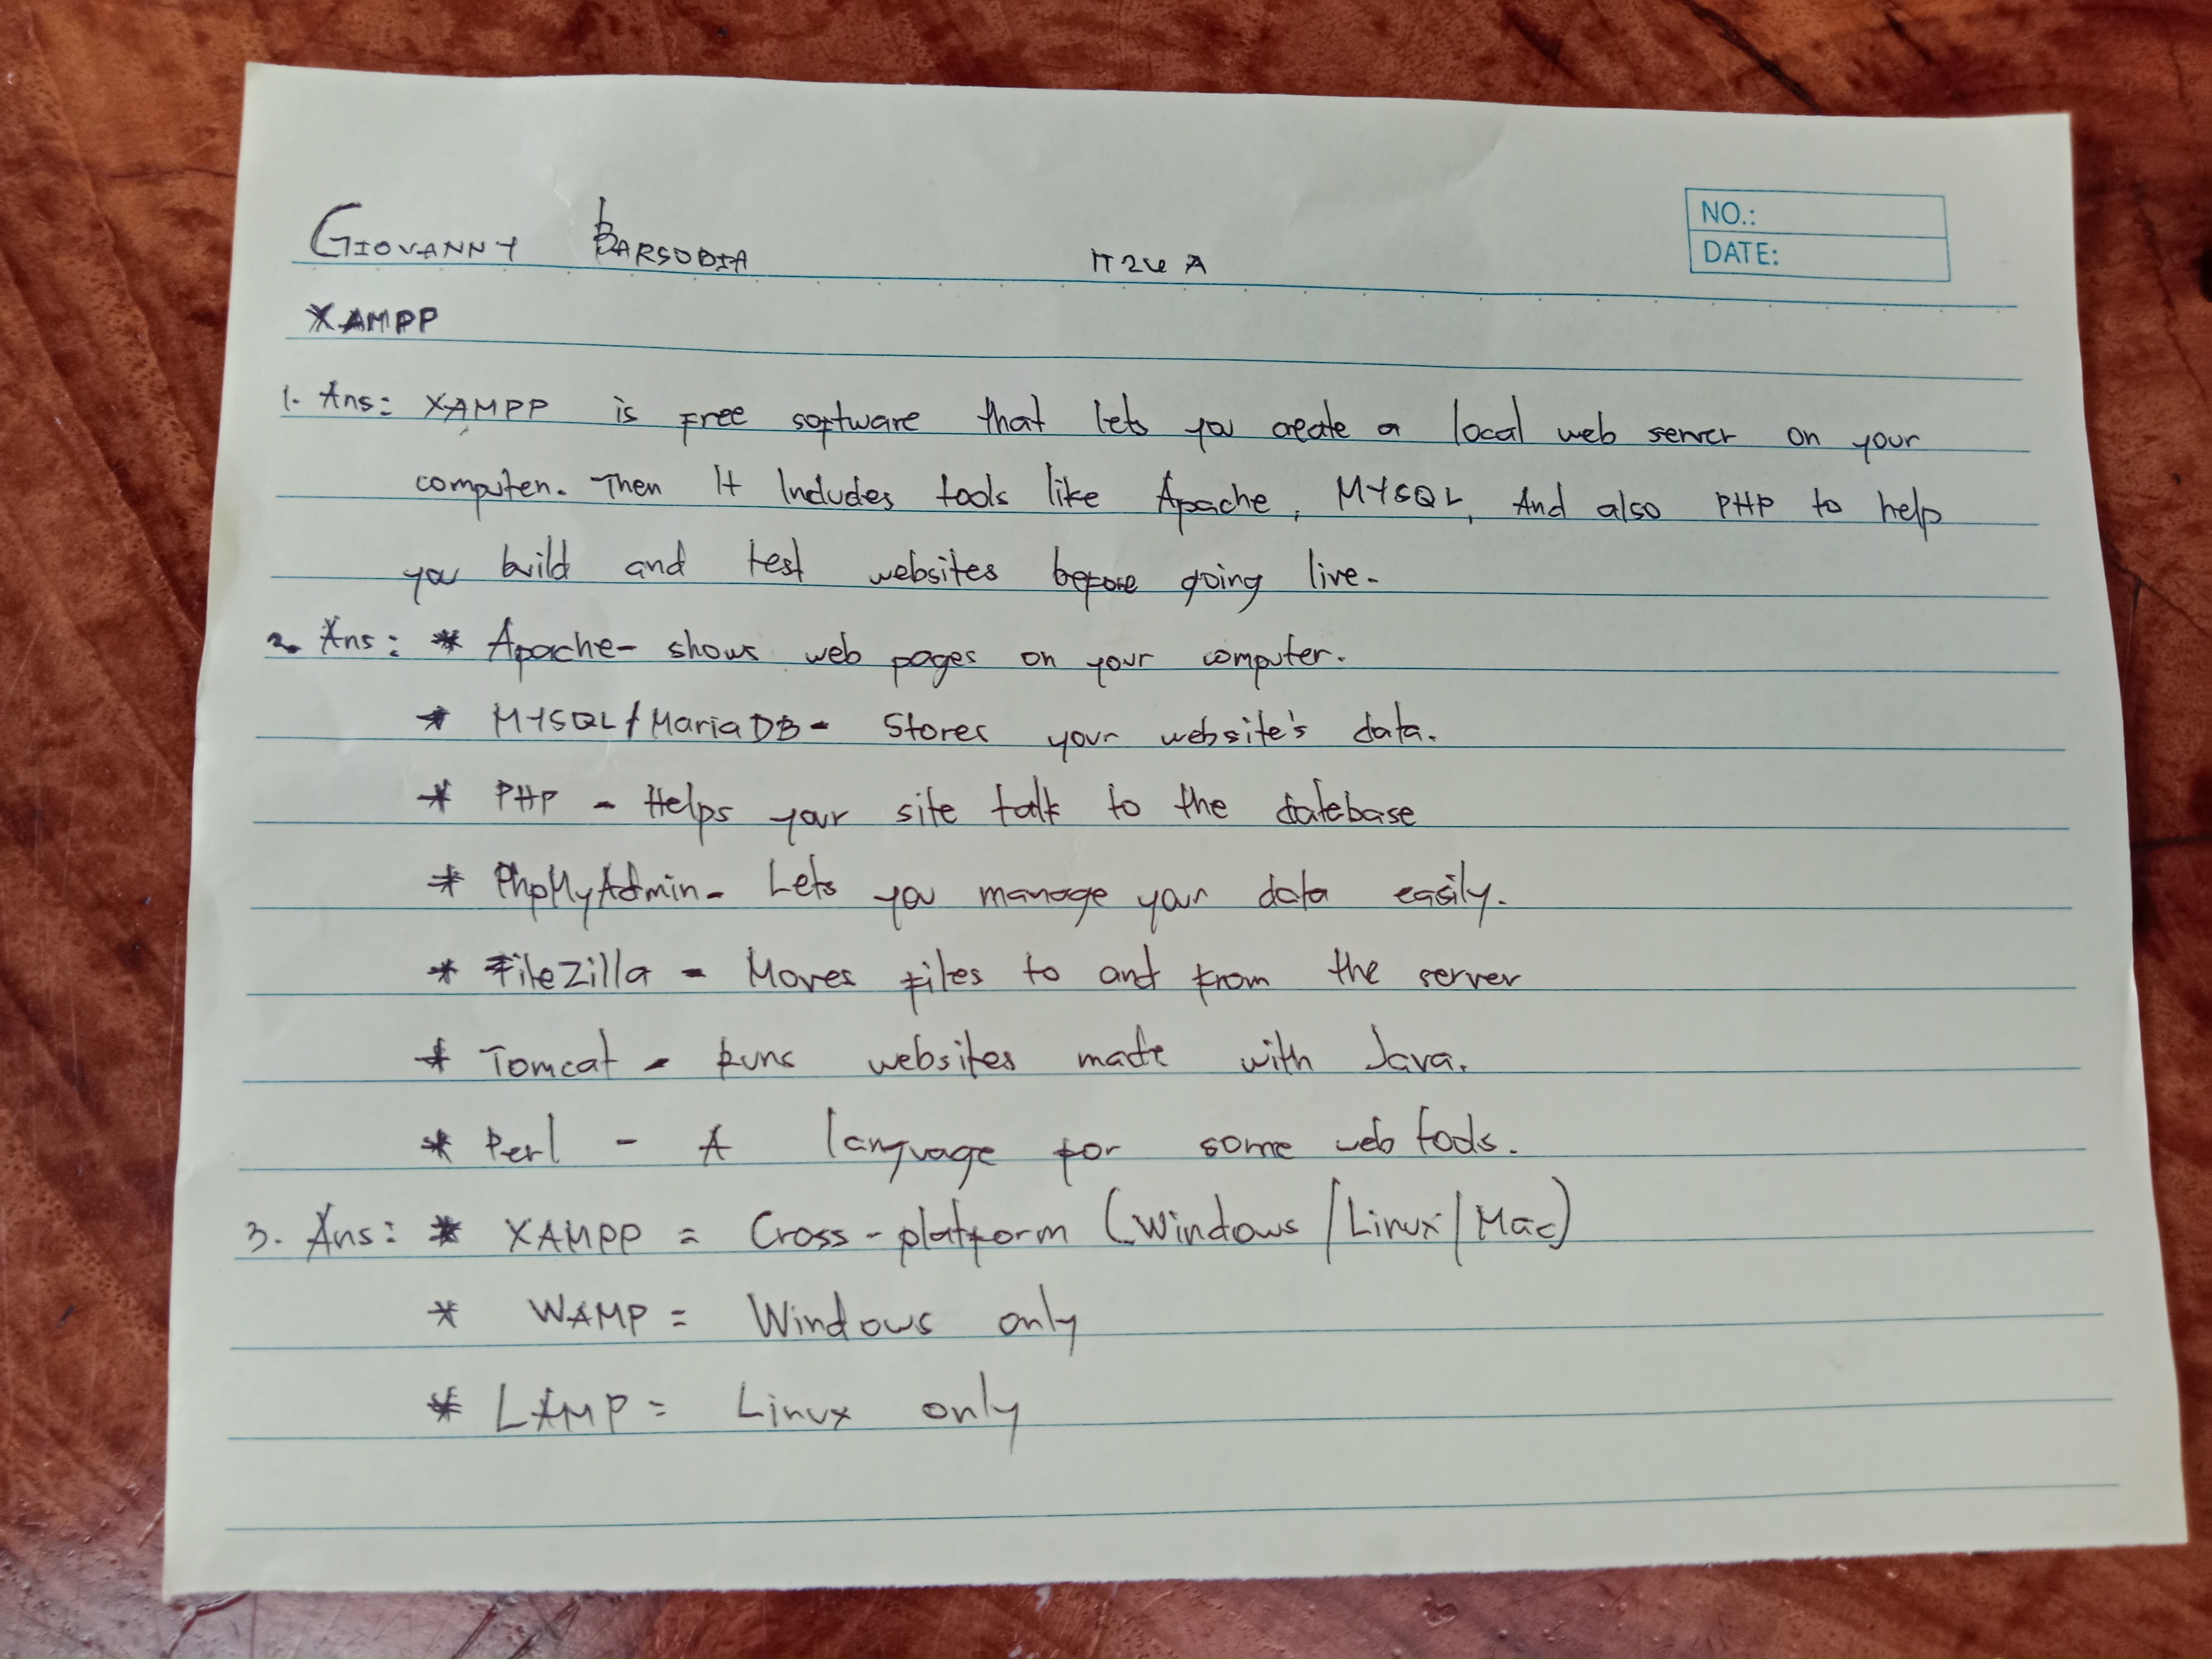 GIOVANNY BARSOBIA
NO.:
DATE:
XAMPP
1. Ans: XAMPP is free software that lets you create a local web server on your
computer. Then It Includes tools like Apache, MYSQL, And also PHP to help
you build and test websites before going live.
2. Ans: * Apache- shows web pages on your computer.
* MYSQL/MariaDB- Stores your website's data.
* PHP - Helps your site talk to the database
* PhpMyAdmin- Lets you manage your data easily.
* FileZilla - Moves files to and from the server
* Tomcat - Runs websites made with Java.
* Perl - A language for some web tools.
3. Ans: * XAMPP = Cross-platform (Windows/Linux/Mac)
* WAMP = Windows only
* LAMP = Linux only